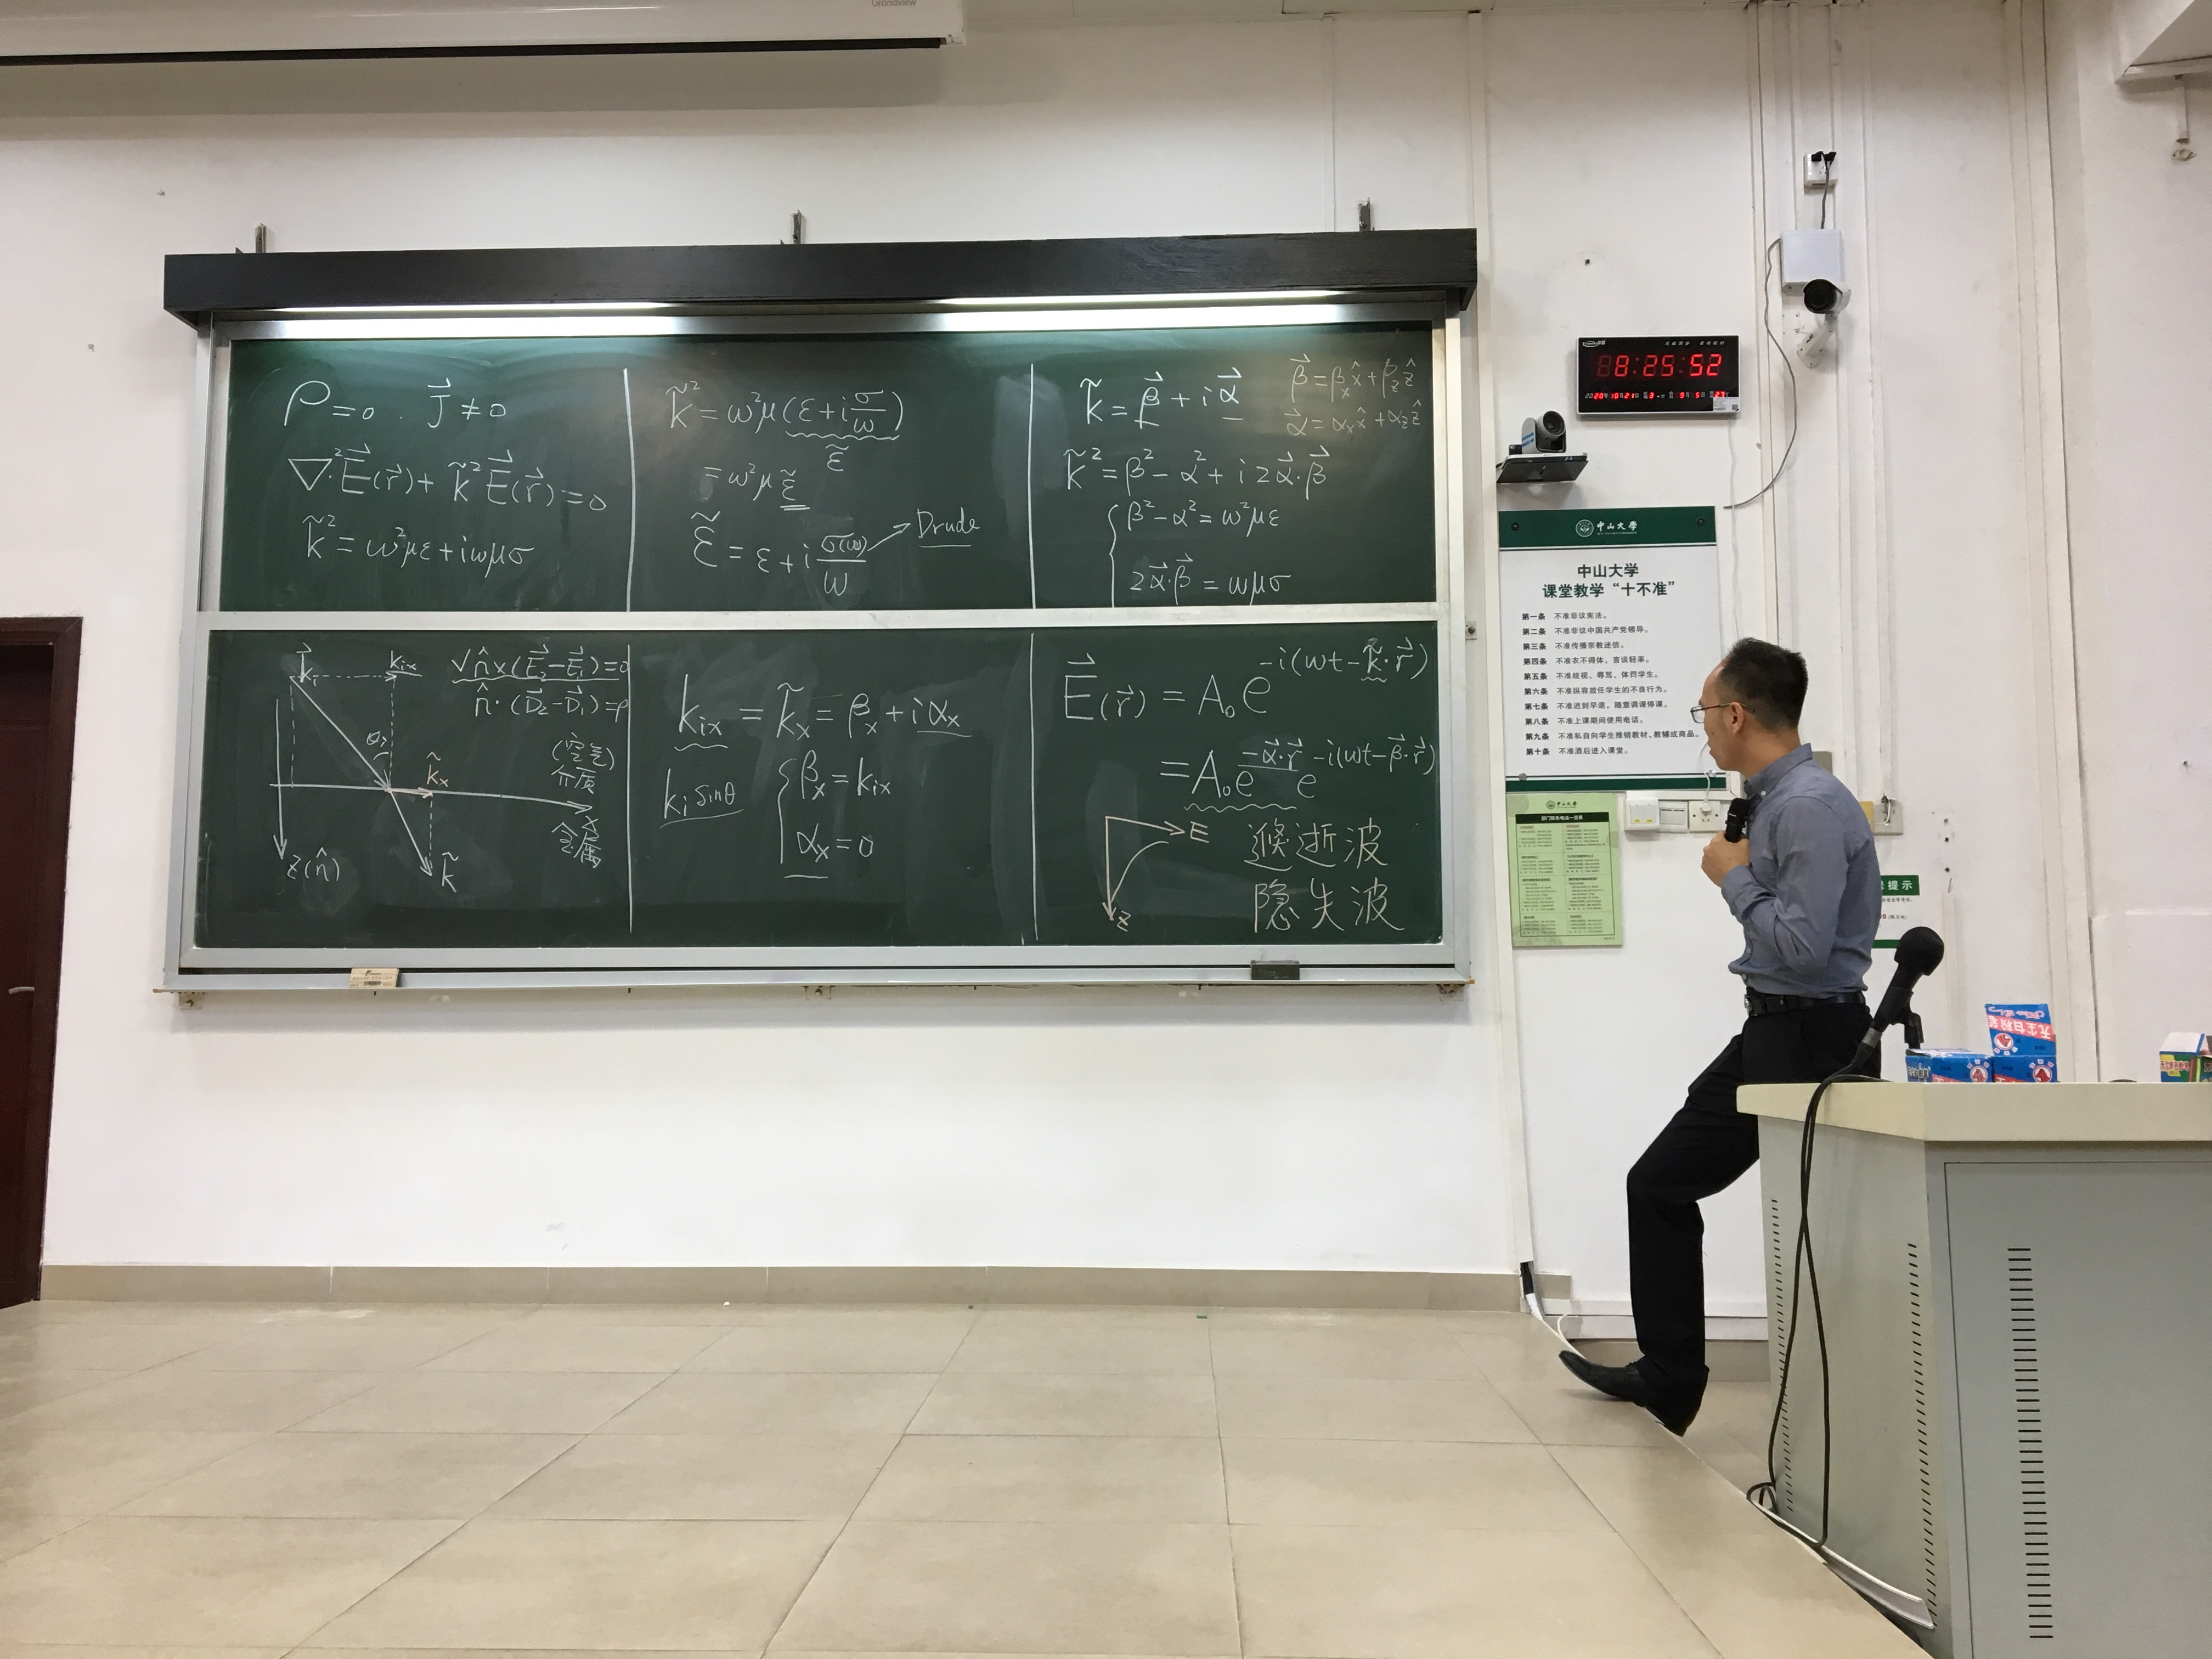 Grandview
ρ = 0 . J⃗ ≠ 0
∇²E⃗(r⃗) + k̃²E⃗(r⃗) = 0
k̃² = ω²με + iωμσ
k̃² = ω²μ(ε + i σ/ω)
ε̃
= ω²μ ε̃
ε̃ = ε + i σ(ω)/ω → Drude
k̃ = β⃗ + i α⃗
β⃗ = βₓx̂ + β_z ẑ
α⃗ = αₓx̂ + α_z ẑ
k̃² = β² − α² + i 2α⃗·β⃗
β² − α² = ω²με
2α⃗·β⃗ = ωμσ
k⃗ᵢ
kᵢₓ
√ n̂×(E⃗₂−E⃗₁)=0
n̂·(D⃗₂−D⃗₁)=ρ
θ
(空气)
介质
k̃ₓ
x
金属
z(n̂)
k̃
kᵢₓ = k̃ₓ = βₓ + i αₓ
kᵢ sinθ
βₓ = kᵢₓ
αₓ = 0
E⃗(r⃗) = A₀ e^{−i(ωt − k̃·r⃗)}
= A₀ e^{−α⃗·r⃗} e^{−i(ωt − β⃗·r⃗)}
E
z
倏逝波
隐失波
8:25:52
2020年10月21日
中山大学
中山大学
课堂教学“十不准”
第一条 不准非议宪法。
第二条 不准非议中国共产党领导。
第三条 不准传播宗教迷信。
第四条 不准衣不得体，言谈轻率。
第五条 不准歧视、辱骂、体罚学生。
第六条 不准纵容放任学生的不良行为。
第七条 不准迟到早退，随意调课停课。
第八条 不准上课期间使用电话。
第九条 不准私自向学生推销教材、教辅或商品。
第十条 不准酒后进入课堂。
中山大学
提示
无尘白粉笔